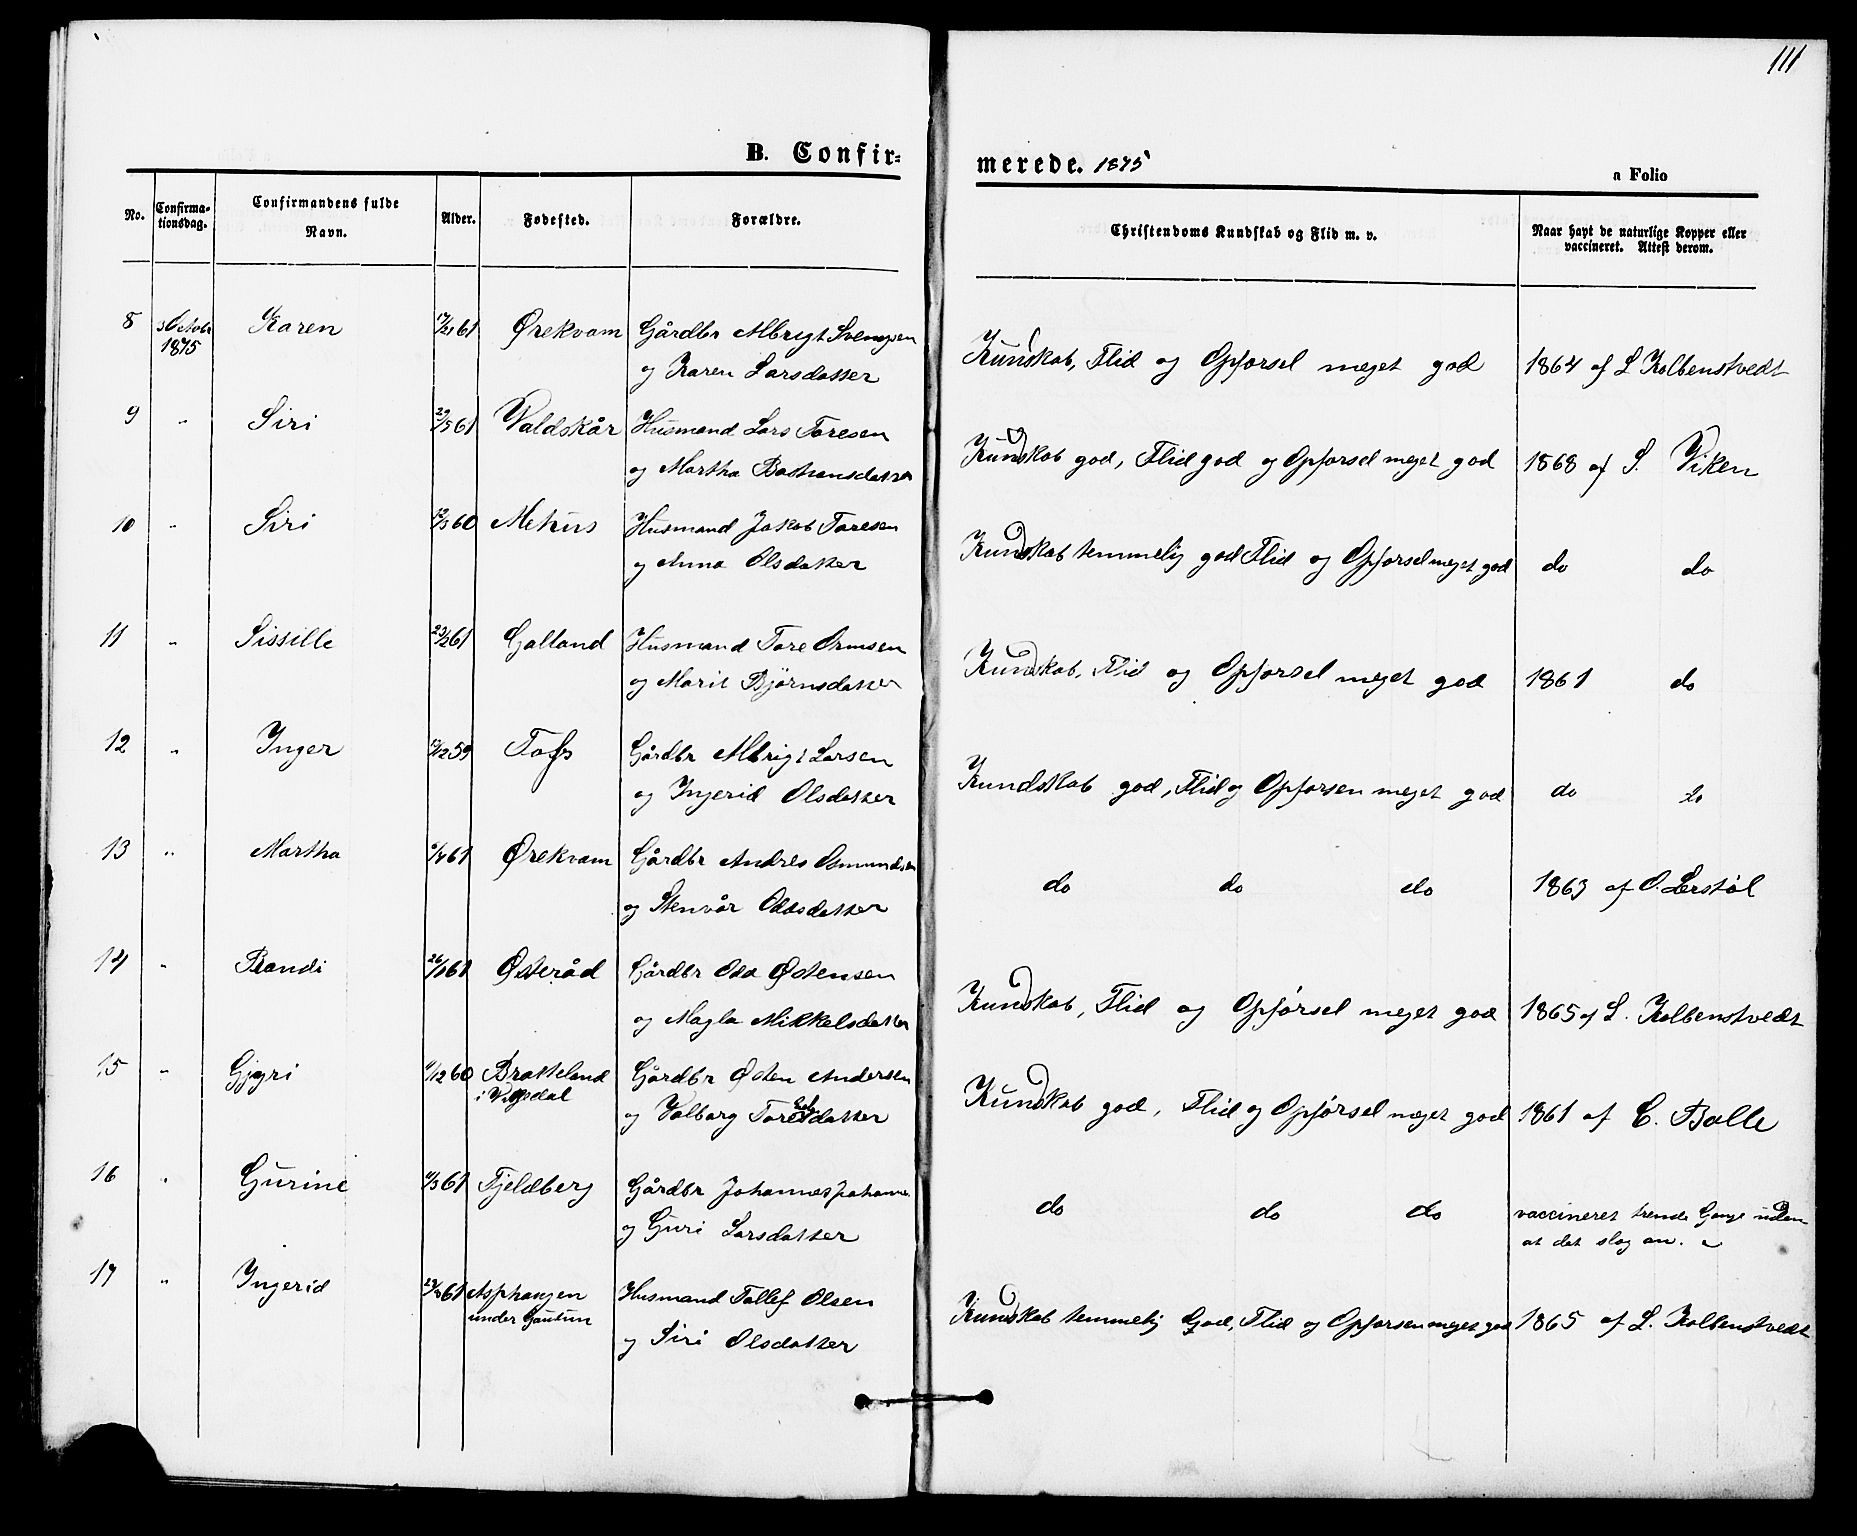 111
B. Confir=
merede. 1875
a Folio
No.
Confirma-
tionsdag.
Confirmandens fulde
Navn.
Alder.
Fødested.
Forældre.
Christendoms Kundskab og Flid m. v.
Naar havt de naturlige Kopper eller
vaccineret. Attest derom.
8 3 Octobr Karen 61 Ørekvam Gårdbr Albrigt Svensen
1875 og Karen Larsdatter
Kundskab, Flid og Opforsel meget god 1864 af L Kolbenstvedt
9 " Siri 29/5 61 Valdskår Husmand Lars Toresen
og Martha Bastiansdatter
Kundskab god, Flid god og Opforsel meget god 1868 af S. Viken
10 " Siri 60 Mehus Husmand Jakob Toresen
og Anna Olsdatter
Kundskab temmelig god Flid og Opforsel meget god do do
11 " Sissille 23/2 61 Galland Husmand Tore Ormsen
og Marit Björnsdatter
Kundskab, Flid og Opforsel meget god 1861 do
12 " Inger 59 Tofs Gårdbr Albrigt Larsen
og Ingerid Olsdatter
Kundskab god, Flid og Opforsen meget god do do
13 " Martha 61 Ørekvam Gårdbr Andres Osmundsen
og Stenvår Oddsdatter
do do do 1863 af O. Lerstøl
14 " Randi 61 Østeråd Gårdbr Odd Østensen
og Magla Mikkelsdatter
Kundskab, Flid og Opförsel meget god 1865 af L. Kolbenstvedt
15 " Gjyri 60 Bratteland Gårdbr Østen Andersen
i Vigsdal og Valborg Toresdatter
Kundskab god, Flid og Opförsel meget god 1861 af C. Balle
16 " Gurine 61 Fjeldberg Gårdbr Johannes Johannes
og Guri Larsdatter
do do do vaccineret trende Gange uden
at det slog an.
17 " Ingerid 61 Asphaugen Husmand Tallef Olsen
under Gautun og Siri Olsdatter
Kundskab temmelig God, Flid og Opforsen meget god 1865 af L. Kolbenstvedt